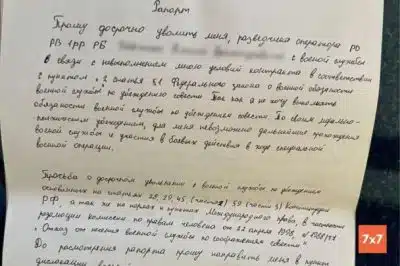 Рапорт
Прошу досрочно уволить меня, разведчика оператора РО
РВ 1РР РБ с военной службы
в связи с невыполнением мною условий контракта в соответствии
с пунктом 2 статьи 51 Федерального закона о военной обязанности
военной службы по убеждению совести. Так как я не хочу выполнять
обязанности военной службы по убеждению совести. По своим морально-
политическим убеждениям, для меня невозможно дальнейшее прохождения
военной службы и участия в боевых действиях в ходе специальной
военной операции.
Просьба о досрочном увольнении с военной службы по убеждениям
основанных на статьях 28, 29, 45 (часть 2) 59 (часть 3) Конституции
РФ, а так же на нормах и пунктах международного права, в частности
резолюции комиссии по правам человека от 22 апреля 1998, № 1998/77
"Отказ от несения военной службы по соображениям совести"
До рассмотрения рапорта прошу направить меня в пункт
дислокации
7×7